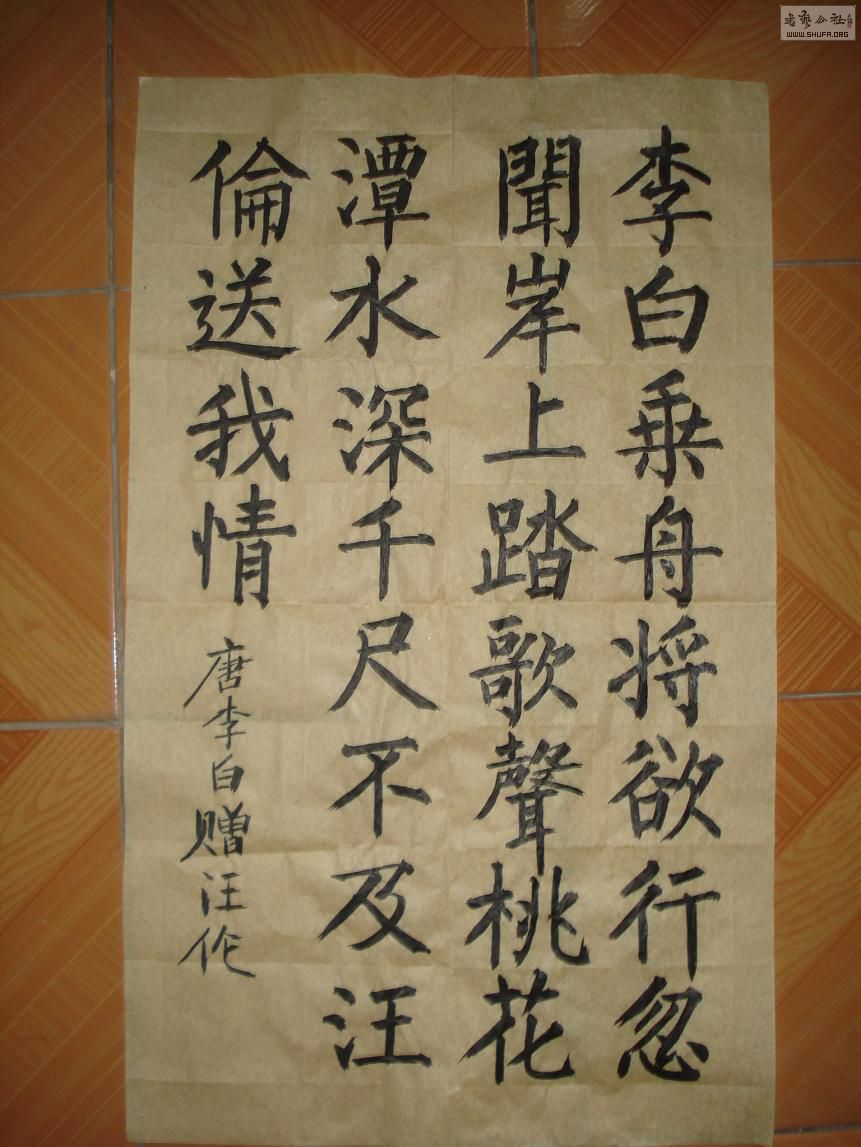 李白乗舟将欲行忽
聞岸上踏歌聲桃花
潭水深千尺不及汪
倫送我情
唐李白赠汪伦
WWW.SHUFA.ORG